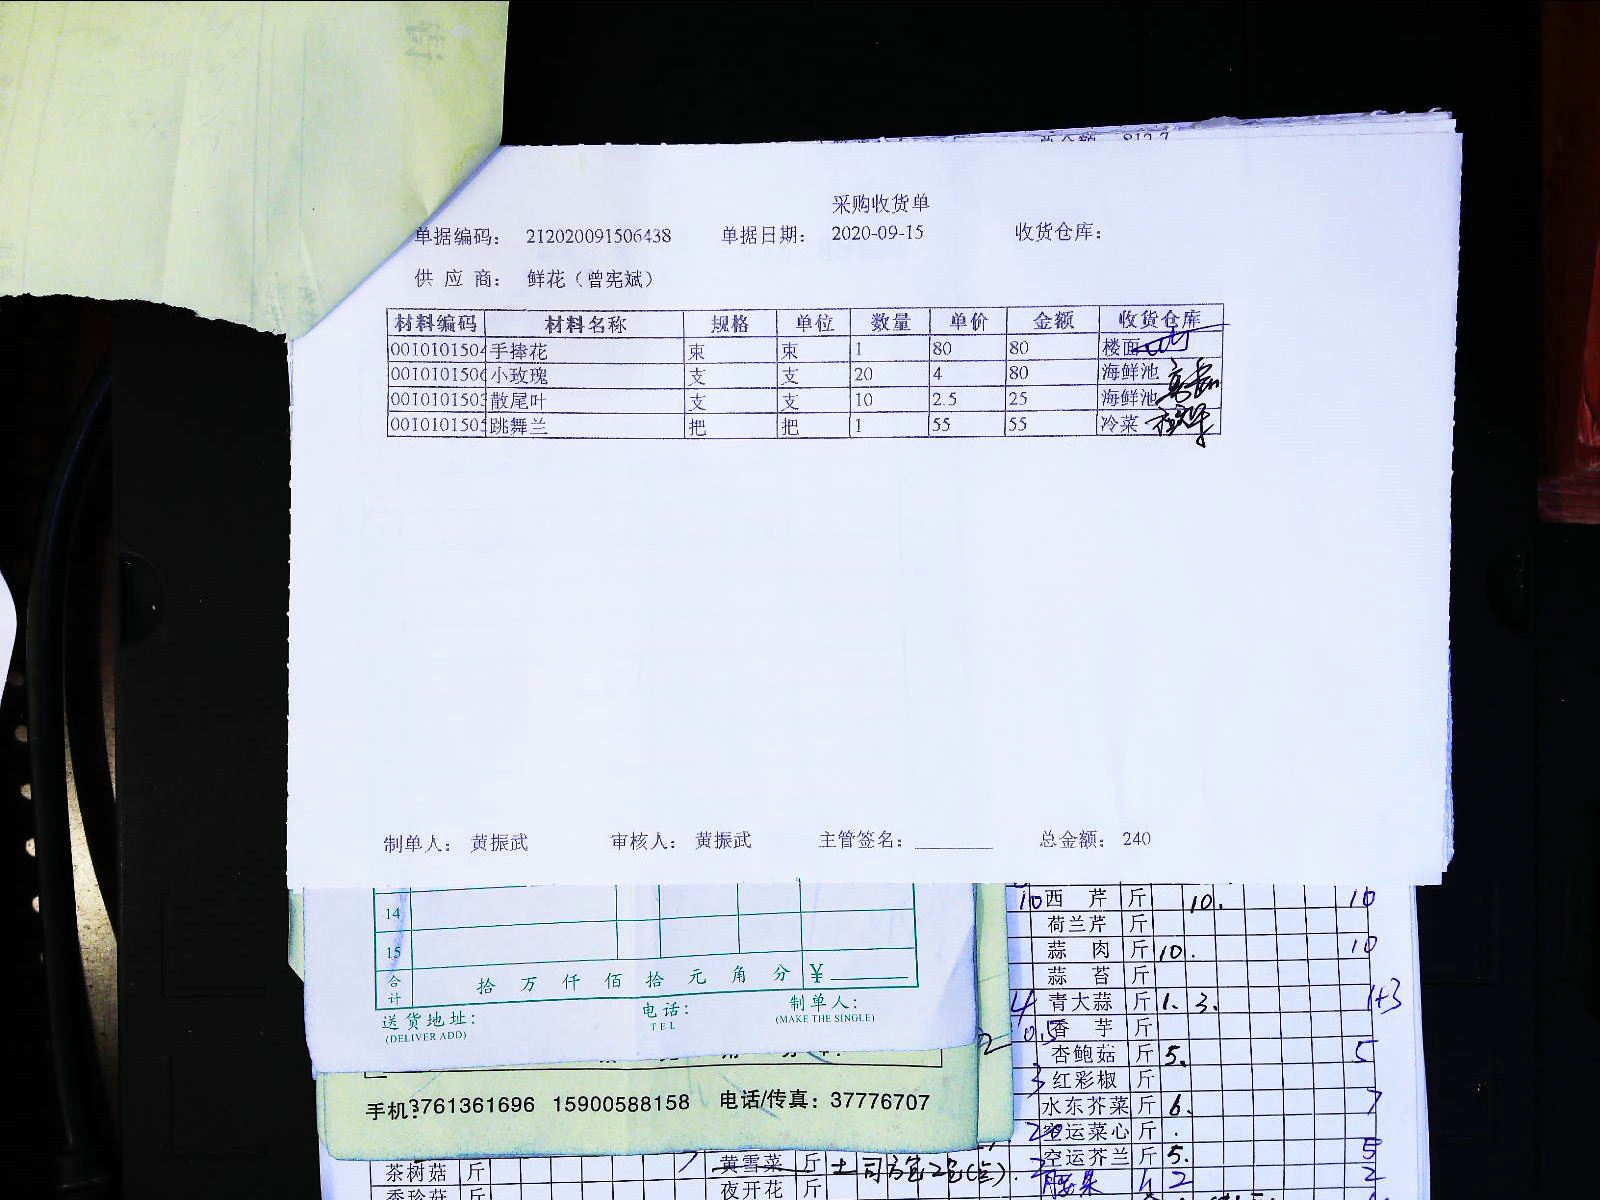 总金额 812.7
采购收货单
单据编码： 212020091506438 单据日期： 2020-09-15 收货仓库：
供 应 商： 鲜花（曾宪斌）
材料编码 材料名称 规格 单位 数量 单价 金额 收货仓库
0010101504 手捧花 束 束 1 80 80 楼面
0010101506 小玫瑰 支 支 20 4 80 海鲜池
0010101503 散尾叶 支 支 10 2.5 25 海鲜池
0010101505 跳舞兰 把 把 1 55 55 冷菜
制单人： 黄振武 审核人： 黄振武 主管签名： 总金额： 240
14
15
合计 拾 万 仟 佰 拾 元 角 分 ¥
送货地址： 电话： 制单人：
(DELIVER ADD) TEL (MAKE THE SINGLE)
手机:3761361696 15900588158 电话/传真：37776707
10 西 芹 斤 10. 10
荷兰芹 斤
蒜 肉 斤 10. 10
蒜 苔 斤
4 青大蒜 斤 1. 3. 1+3
0.5 香 芋 斤
2 杏鲍菇 斤 5. 5
3 红彩椒 斤
水东芥菜 斤 6. 7
空运菜心 斤
空运芥兰 斤 5. 5
腰果 2 2
茶树菇 斤 黄雪菜 斤
秀珍菇 斤 夜开花 斤